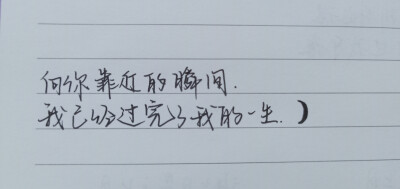 向你靠近的瞬间.
我已经过完了我的一生.)